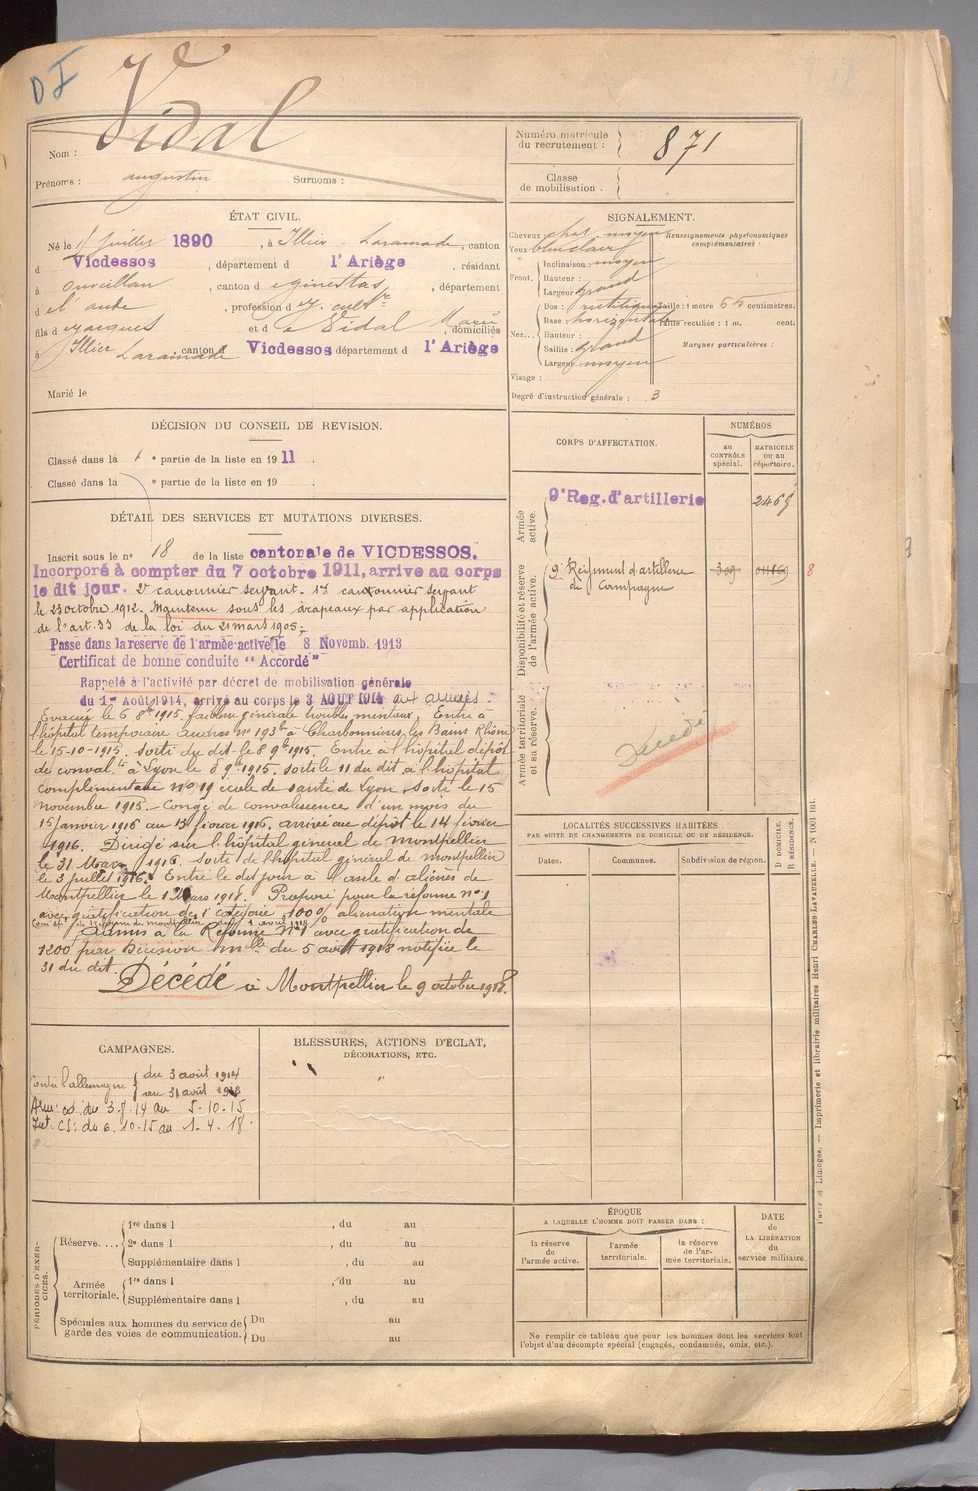 DI
Vidal
Nom :
Prénoms : augustin Surnoms :
Numéro matricule du recrutement : 871
Classe de mobilisation :
ÉTAT CIVIL.
Né le juillet 1890, à Illier-Laramade, canton
d Vicdessos, département d l'Ariège, résidant
à ouveillan, canton d ginestas, département
d e l'aude, profession d cultr
fils d e Jacques et d e Vidal Marie, domiciliés
à Illier Laramade canton d Vicdessos département d l'Ariège
Marié le
SIGNALEMENT.
Cheveux chat. moyen
Yeux bleu clair
Renseignements physionomiques complémentaires :
Front. Inclinaison : moyen
Hauteur :
Largeur : grand
Nez. Dos : rectiligne
Base : horizontale
Hauteur :
Saillie : grand
Largeur : moyen
Taille : 1 mètre 65 centimètres.
Taille rectifiée : 1 m. cent.
Marques particulières :
Visage :
Degré d'instruction générale : 3
DÉCISION DU CONSEIL DE REVISION.
Classé dans la 1 e partie de la liste en 1911.
Classé dans la e partie de la liste en 19 .
DÉTAIL DES SERVICES ET MUTATIONS DIVERSES.
Inscrit sous le n° 18 de la liste cantonale de VICDESSOS.
Incorporé à compter du 7 octobre 1911, arrivé au corps
le dit jour. 2e canonnier servant. 1er canonnier servant
le 23 octobre 1912. Maintenu sous les drapeaux par application
de l'art. 33 de la loi du 21 mars 1905.
Passé dans la réserve de l'armée active le 8 Novemb. 1913
Certificat de bonne conduite "Accordé"
Rappelé à l'activité par décret de mobilisation générale
du 1er Août 1914, arrivé au corps le 3 AOUT 1914 aux armées.
Evacué le 6 8bre 1915. faiblesse générale troubles mentaux. Entré à
l'hôpital temporaire n° 193 à Charbonnières les Bains Rhône
le 15-10-1915. sorti du dit le 8 9bre 1915. Entré à l'hôpital dépôt
de conval. à Lyon le 8 9bre 1915. sorti le 11 du dit à l'hôpital
complémentaire n° 19 école de santé de Lyon, sorti le 15
novembre 1915. Congé de convalescence d'un mois du
15 Janvier 1916 au 13 février 1916. arrivé au dépôt le 14 février
1916. Dirigé sur l'hôpital général de montpellier
le 31 Mars 1916. sorti de l'hôpital général de montpellier
le 3 juillet 1916. Entré le dit jour à l'asile d'aliénés de
Montpellier le 1 Mars 1918. Proposé pour la réforme n° 1
avec gratification de 1e catégorie 100% aliénation mentale
Admis à la Réforme N° 1 avec gratification de
1200f par Décision Mlle du 5 août 1918 notifiée le
31 du dit.
Décédé à Montpellier le 9 octobre 1918.
CORPS D'AFFECTATION.
NUMÉROS
au CONTRÔLE spécial.
MATRICULE OU AU répertoire.
Armée active.
9e Reg. d'artillerie 2465
Disponibilité et réserve de l'armée active.
9e Régiment d'artillerie de Campagne 309 8
Armée territoriale et sa réserve.
Décédé
LOCALITÉS SUCCESSIVES HABITÉES
PAR SUITE DE CHANGEMENTS DE DOMICILE OU DE RÉSIDENCE.
Dates. Communes. Subdivision de région.
D DOMICILE. R RÉSIDENCE.
CAMPAGNES.
Contre l'allemagne du 3 août 1914
au 31 août 1918
Arm: cd: du 3.8.14 au 5-10-15
Int. CS: du 6.10-15 au 1.4.18.
BLESSURES, ACTIONS D'ÉCLAT,
DÉCORATIONS, ETC.
PÉRIODES D'EXERCICES.
Réserve.... 1re dans l , du au
2e dans l , du au
Supplémentaire dans l , du au
Armée territoriale. 1re dans l , du au
Supplémentaire dans l , du au
Spéciales aux hommes du service de garde des voies de communication. Du au
Du au
ÉPOQUE
A LAQUELLE L'HOMME DOIT PASSER DANS :
la réserve de l'armée active.
l'armée territoriale.
la réserve de l'armée territoriale.
DATE de LA LIBÉRATION du service militaire.
Ne remplir ce tableau que pour les hommes dont les services font
l'objet d'un décompte spécial (engagés, condamnés, omis, etc.).
Paris et Limoges. — Imprimerie et librairie militaires Henri CHARLES-LAVAUZELLE. — N 1001 int.